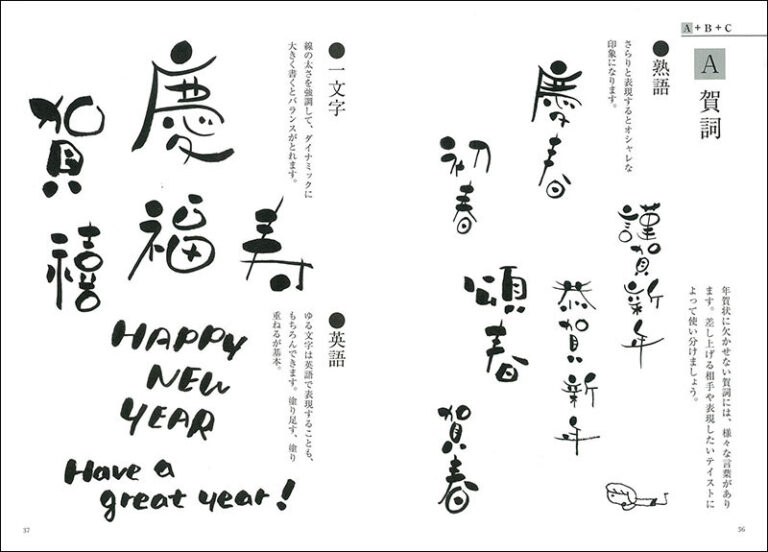 A+B+C
A 賀詞
年賀状に欠かせない賀詞には、様々な言葉があり
ます。差し上げる相手や表現したいテイストに
よって使い分けましょう。
●熟語
さらりと表現するとオシャレな
印象になります。
慶春
初春
謹賀新年
恭賀新年
頌春
賀春
36
●一文字
線の太さを強調して、ダイナミックに
大きく書くとバランスがとれます。
慶
賀
寿
福
禧
●英語
ゆる文字は英語で表現することも、
もちろんできます。塗り足す、塗り
重ねるが基本。
HAPPY
NEW
YEAR
Have a
great year!
37